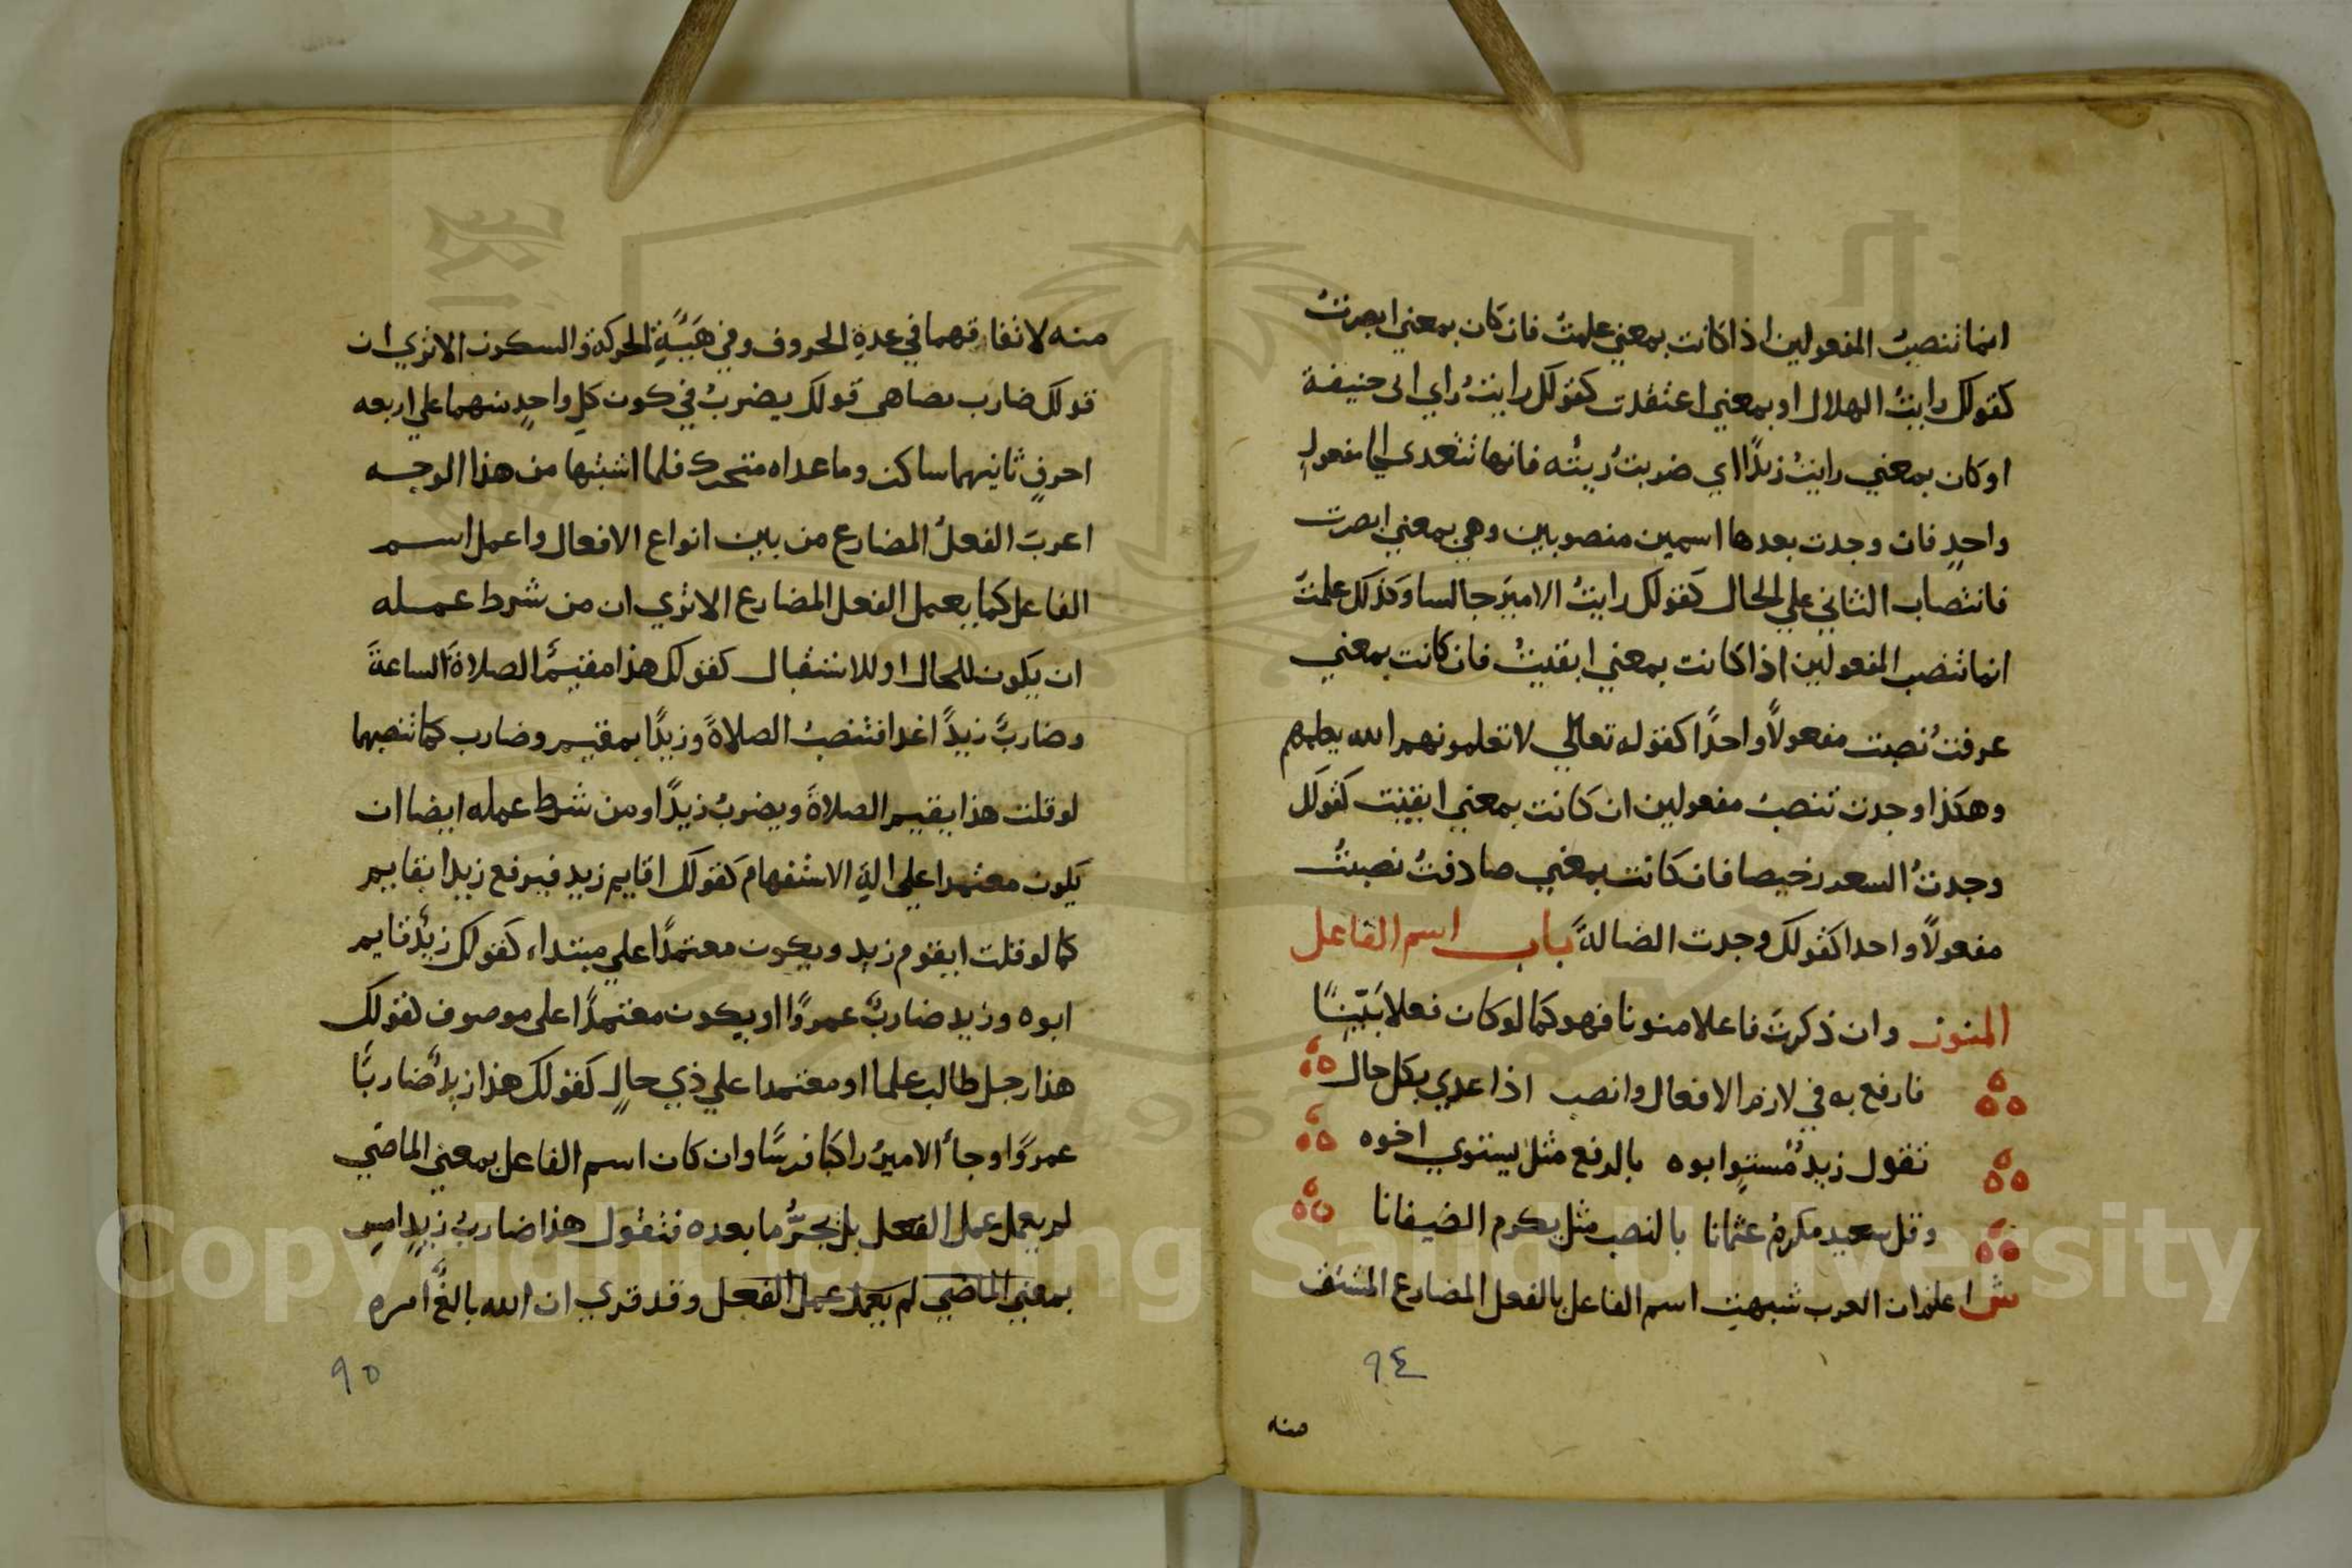 انما تنصبُ المفعولين اذا كانت بمعني علمتُ فان كان بمعني ابصرتُ
كقولك رايتُ الهلال او بمعني اعتقدت كقولك رايتُ راي ابى حنيفة
او كان بمعني رايتُ زيدًا اي ضربتُ ريته فانها تتعدى الي مفعولٍ
واحدٍ فان وجدت بعدها اسمين منصوبين وهي بمعني ابصرت
فانتصاب الثاني علي الحال كقولك رايتُ الاميرَ جالسا وكذلك علمتُ
انما تنصب المفعولين اذا كانت بمعني ايقنتُ فان كانت بمعني
عرفتُ نصبت مفعولاً واحدًا كقوله تعالي لا تعلمونهم الله يعلمهم
وهكذا وجدت تنصبُ مفعولين ان كانت بمعني ايقنت كقولك
وجدتُ السعر رخيصا فان كانت بمعني صادفتُ نصبتُ
مفعولاً واحدا كقولك وجدت الضالةَ باب اسم الفاعل
المنون وان ذكرتَ فاعلا منونا فهو كما لو كان فعلا بَيّنًا
فارفع به في لازم الافعال وانصب اذا عدي بكل حال
تقول زيدٌ مُستوٍ ابوه بالرفع مثل يستوي اخوه
وقل سعيد مكرمٌ عثمانا بالنصب مثل يكرم الضيفانا
ش اعلم ان العرب شبهت اسم الفاعل بالفعل المضارع المشتق
٩٤
منه
منه لاتفاقهما في عدةِ الحروف وفي هَيْئَةِ الحركة والسكون الا تري ان
قولك ضارب يضاهى قولك يضربُ في كون كلِ واحدٍ منهما علي اربعه
احرفٍ ثانيهما ساكن وما عداه متحرك فلما اشتبها من هذا الوجه
اعربَ الفعلُ المضارع من بين انواع الافعال واعمل اسم
الفاعل كما يعمل الفعل المضارع الا تري ان من شرط عمله
ان يكون للحال او للاستقبال كقولك هذا مقيمٌ الصلاةَ الساعةَ
وضاربٌ زيدًا غدا فتنصبُ الصلاةَ وزيدًا بمقيم وضارب كما تنصبهما
لو قلت هذا يقيم الصلاةَ ويضربُ زيدًا ومن شرط عمله ايضا ان
يكون معتمدا علي الةِ الاستفهام كقولك اقايم زيد فيرفع زيدا بقايم
كما لو قلت ايقوم زيد ويكون معتمدًا علي مبتداء كقولك زيدٌ قايم
ابوه وزيد ضاربٌ عمروًا او يكون معتمدًا على موصوف كقولك
هذا رجل طالب علما او معتمدا علي ذي حالٍ كقولك هذا زيدٌ ضاربًا
عمروًا وجأ الاميرُ راكبا فرسًا وان كان اسم الفاعل بمعني الماضي
لم يعمل عمل الفعل بل يجرُّ ما بعده فتقول هذا ضاربُ زيدٍ امسِ
بمعني الماضي لم يعمل عمل الفعل وقد قري ان الله بالغٌ امره
٩٥
Copyright © King Saud University
1957